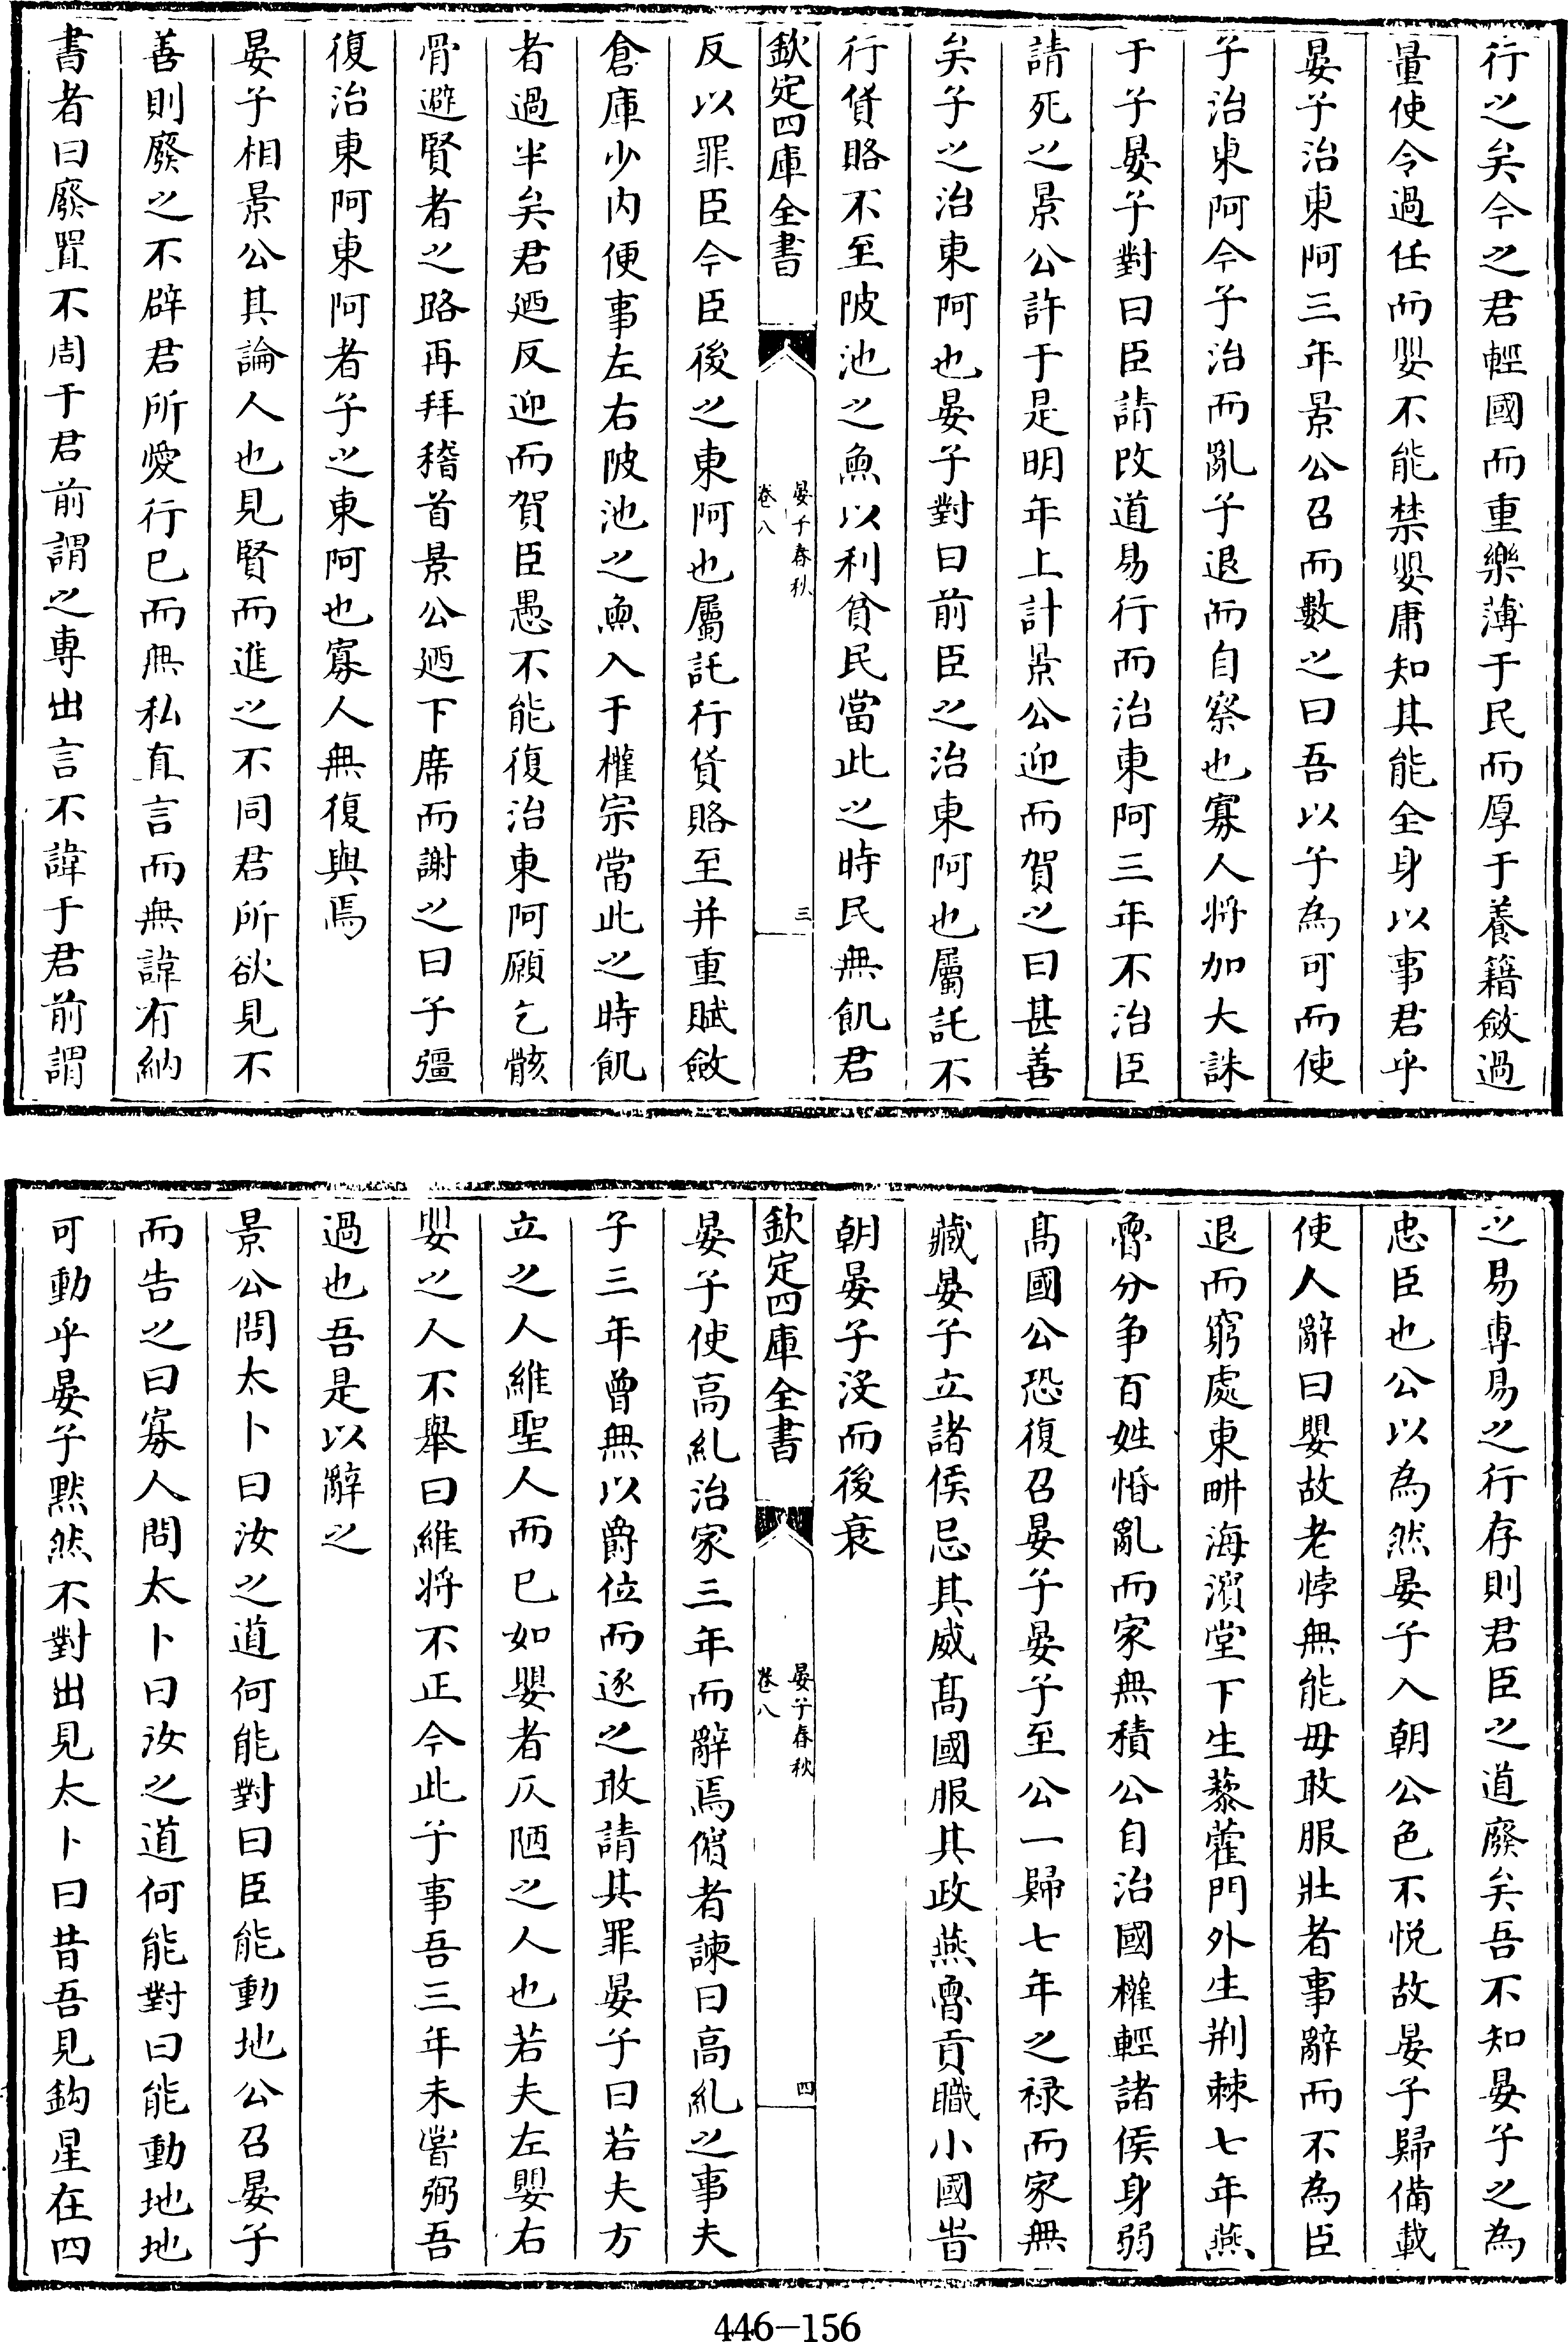 行之矣今之君輕國而重樂薄于民而厚于養籍斂過
量使令過任而嬰不能禁嬰庸知其能全身以事君乎
晏子治東阿三年景公召而數之曰吾以子為可而使
子治東阿今子治而亂子退而自察也寡人將加大誅
于子晏子對曰臣請改道易行而治東阿三年不治臣
請死之景公許于是明年上計景公迎而賀之曰甚善
矣子之治東阿也晏子對曰前臣之治東阿也屬託不
行貨賂不至陂池之魚以利貧民當此之時民無飢君
欽定四庫全書
晏子春秋
卷八
三
反以罪臣今臣後之東阿也屬託行貨賂至并重賦斂
倉庫少内便事左右陂池之魚入于權宗當此之時飢
者過半矣君廼反迎而賀臣愚不能復治東阿願乞骸
骨避賢者之路再拜稽首景公廼下席而謝之曰子彊
復治東阿東阿者子之東阿也寡人無復與焉
晏子相景公其論人也見賢而進之不同君所欲見不
善則廢之不辟君所愛行已而無私直言而無諱有納
書者曰廢置不周于君前謂之專出言不諱于君前謂
之易專易之行存則君臣之道廢矣吾不知晏子之為
忠臣也公以為然晏子入朝公色不悅故晏子歸備載
使人辭曰嬰故老悖無能毋敢服壯者事辭而不為臣
退而窮處東畊海濱堂下生藜藿門外生荆棘七年燕
魯分争百姓惛亂而家無積公自治國權輕諸侯身弱
髙國公恐復召晏子晏子至公一歸七年之禄而家無
藏晏子立諸侯忌其威髙國服其政燕魯貢職小國旹
朝晏子没而後衰
欽定四庫全書
晏子春秋
卷八
四
晏子使高糺治家三年而辭焉儐者諫曰高糺之事夫
子三年曾無以爵位而逐之敢請其罪晏子曰若夫方
立之人維聖人而已如嬰者仄陋之人也若夫左嬰右
嬰之人不舉曰維將不正今此子事吾三年未嘗弼吾
過也吾是以辭之
景公問太卜曰汝之道何能對曰臣能動地公召晏子
而告之曰寡人問太卜曰汝之道何能對曰能動地地
可動乎晏子黙然不對出見太卜曰昔吾見鈎星在四
446-156